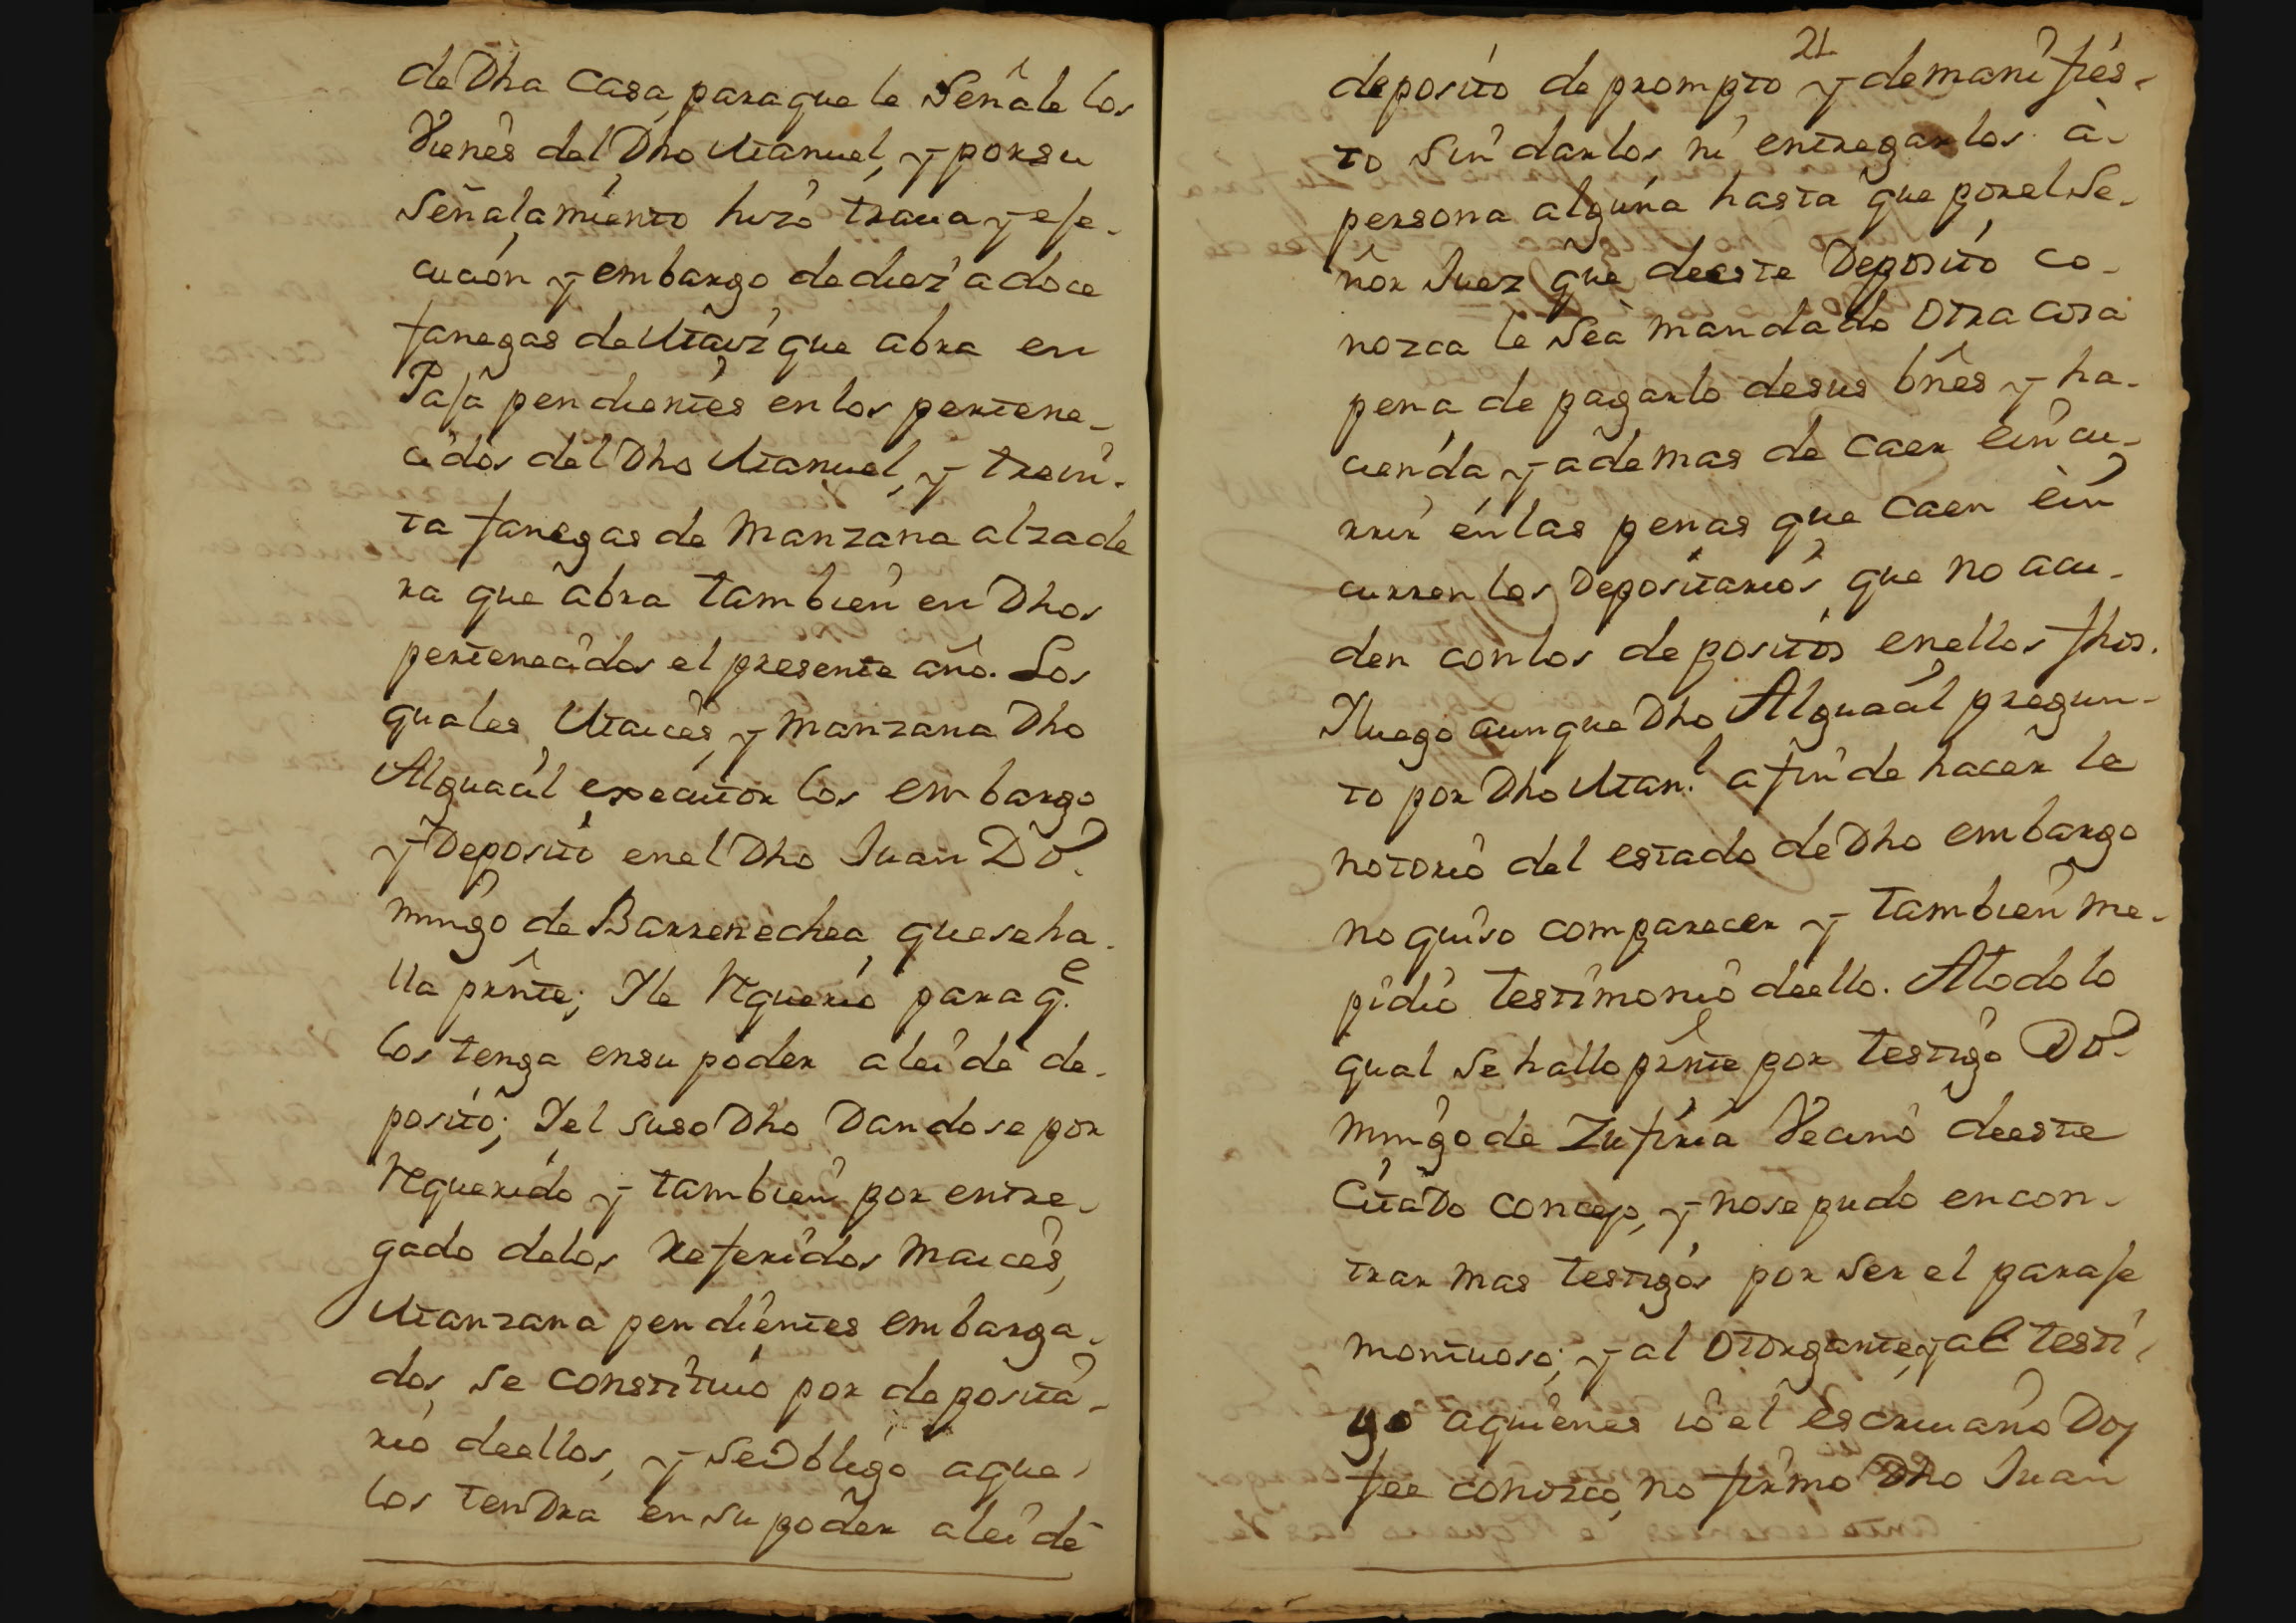 de Dha Casa, para que le Señale los
Vienes del Dho Manuel, y por su
Señalamiento hizo traua y eje-
cucion y embargo de diez a doce
fanegas de Maiz que abra en
Paja pendientes en los pertene-
cidos del Dho Manuel, y trein-
ta fanegas de Manzana alzade
ra que abra tambien en Dhos
pertenecidos el presente año. Los
quales Maices, y Manzana Dho
Alguacil executor los embargo
y Deposito en el Dho Juan Do-
mingo de Barrenechea, que se ha-
lla prnte; Y le Requerio para q.e
los tenga en su poder a lei de de-
posito; Y el suso Dho Dandose por
Requerido y tambien por entre-
gado de los Referidos Maices,
Manzana pendientes embarga-
dos, se constituio por deposita-
rio de ellos, y se Obligo a que
los tendra en su poder a lei de
21
deposito de prompto y de manifies-
to sin darlos ni entregarlos a
persona alguna hasta que por el Se-
ñor Juez que de este Deposito co-
nozca le sea mandado Otra cosa
pena de pagarlo de sus bnes y ha-
cienda y ademas de caer e incu-
rrir en las penas que caen e in
curren los Depositarios que no acu-
den con los depositos en ellos fhos.
Y luego aunque Dho Alguacil pregun-
to por Dho Man.l a fin de hacer le
notorio del estado de Dho embargo
no quiso comparecer y tambien me
pidio testimonio de ello. A todo lo
qual se hallo prnte por testigo Do-
mingo de Zufiria Vecino de este
Citado concejo, y no se pudo encon-
trar mas testigos por ser el paraje
montuoso; y al Otorgante, y al testi-
go a quienes io el escriuano Doy
fee conozco, no firmo Dho Juan